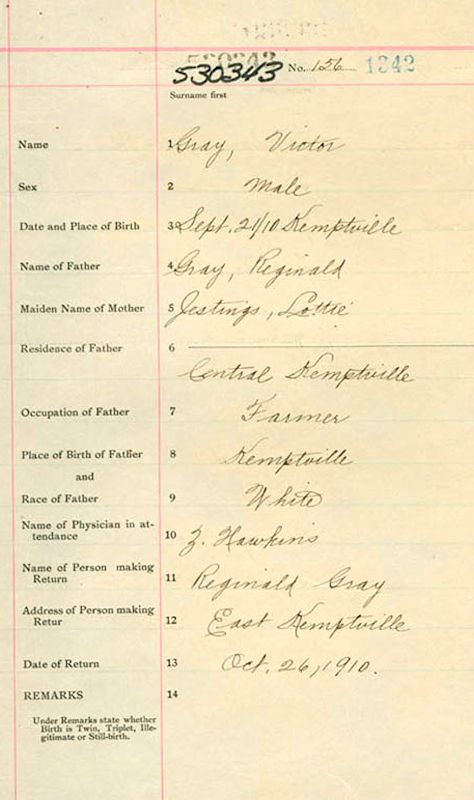 530343 No. 156 1342
Surname first
Name 1 Gray, Victor
Sex 2 Male
Date and Place of Birth 3 Sept. 21/10 Kemptville
Name of Father 4 Gray, Reginald
Maiden Name of Mother 5 Jestings, Lottie
Residence of Father 6
Central Kemptville
Occupation of Father 7 Farmer
Place of Birth of Father 8 Kemptville
and
Race of Father 9 White
Name of Physician in at-
tendance 10 Z. Hawkins
Name of Person making
Return 11 Reginald Gray
Address of Person making
Retur 12 East Kemptville
Date of Return 13 Oct. 26, 1910.
REMARKS 14
Under Remarks state whether
Birth is Twin, Triplet, Ille-
gitimate or Still-birth.